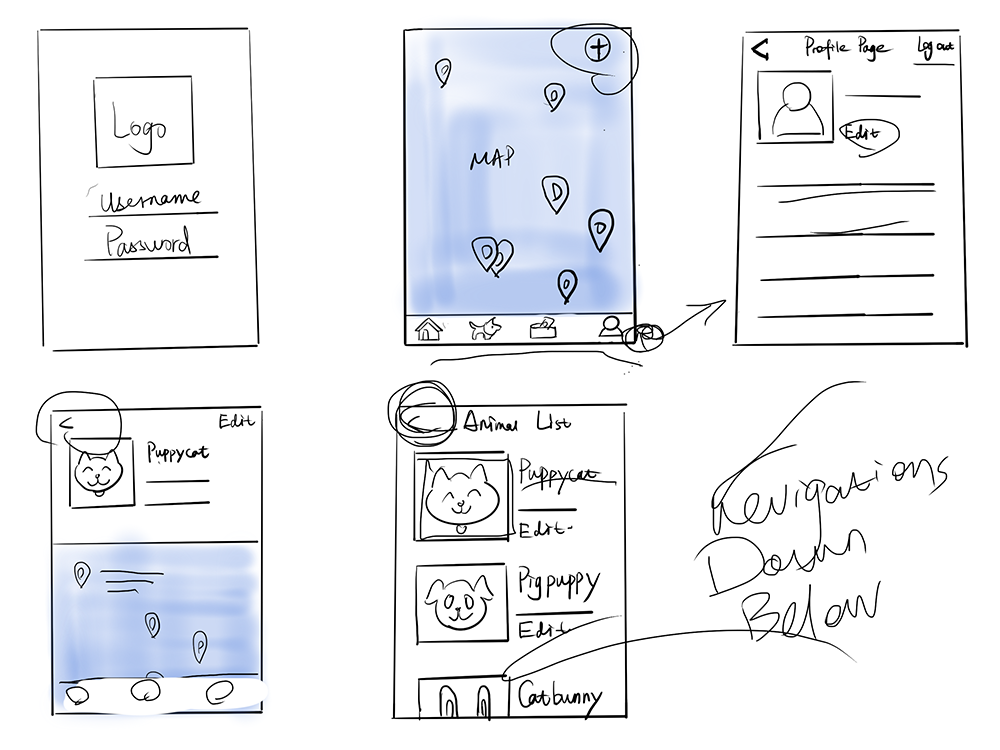 Logo
Username
Password
MAP
Profile Page
Log out
Edit
Edit
Puppycat
Animal List
Puppycat
Edit
Pigpuppy
Edit
Catbunny
Nevigations
Down
Below